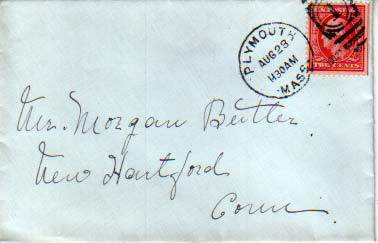 PLYMOUTH
AUG 23
11 30 AM
MASS.
TWO CENTS
Mrs. Morgan Butler
New Hartford
Conn.